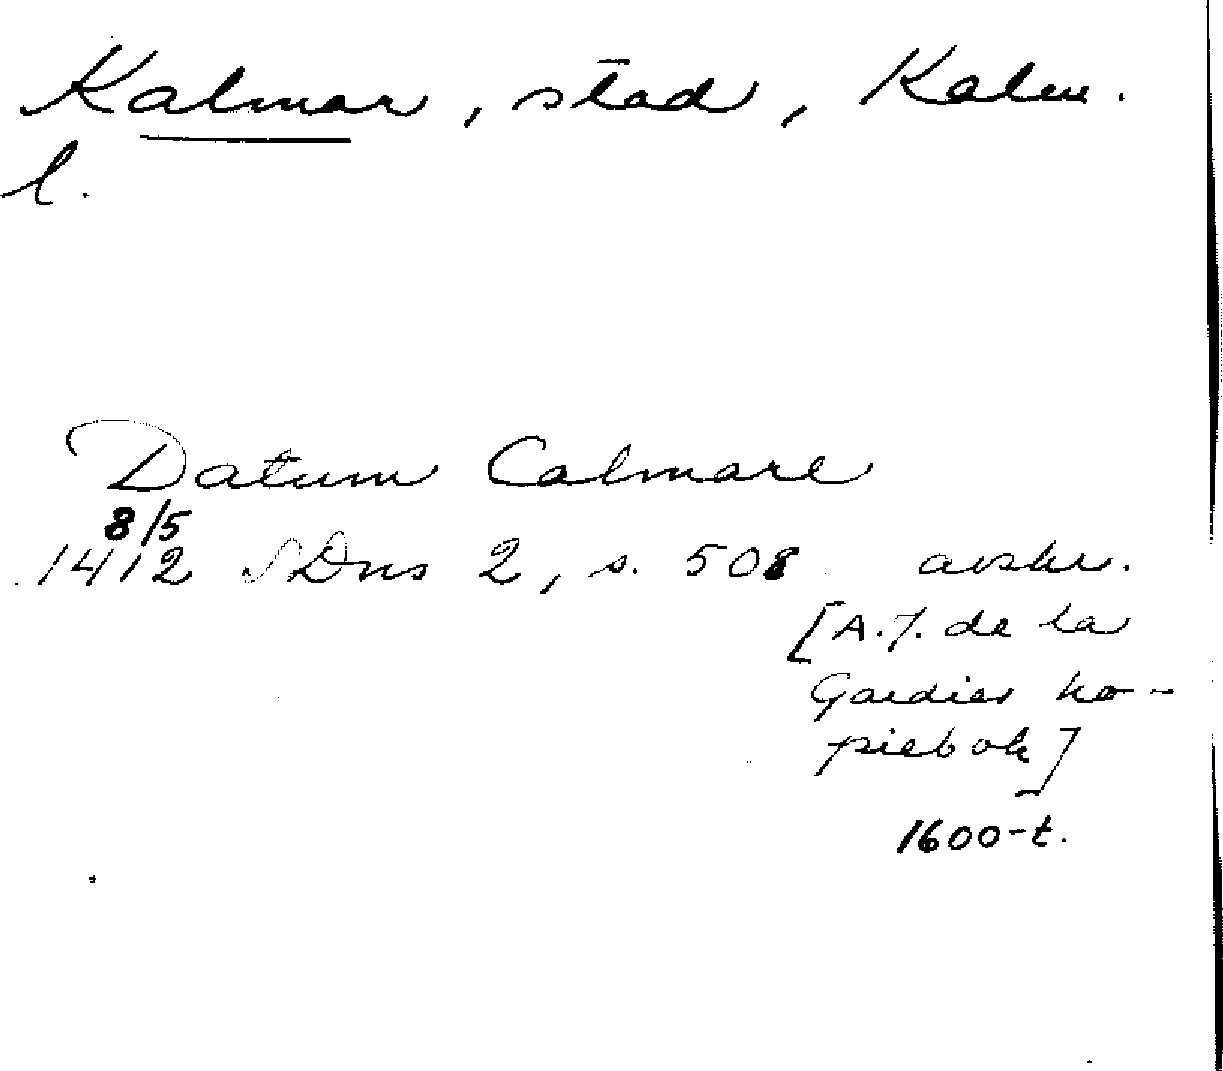 Kalmar, stad, Kalm.
l.
Datum Calmare
8/5
1412 SDns 2, s. 508 avskr.
[A.J. de la
Gardies ko-
piebok]
1600-t.